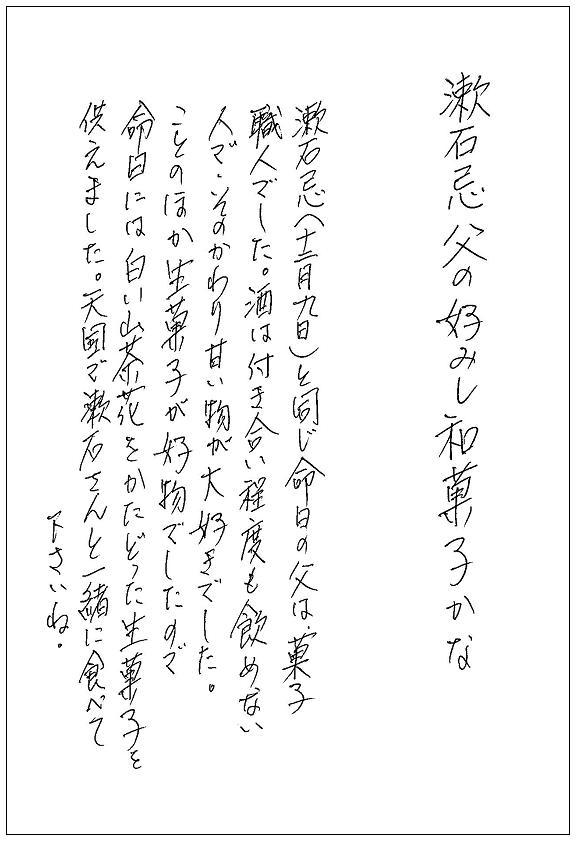 漱石忌父の好みし和菓子かな
漱石忌(十二月九日)と同じ命日の父は、菓子
職人でした。酒は付き合い程度も飲めない
人で、そのかわり甘い物が大好きでした。
ことのほか生菓子が好物でしたので
命日には白い山茶花をかたどった生菓子を
供えました。天国で漱石さんと一緒に食べて
下さいね。